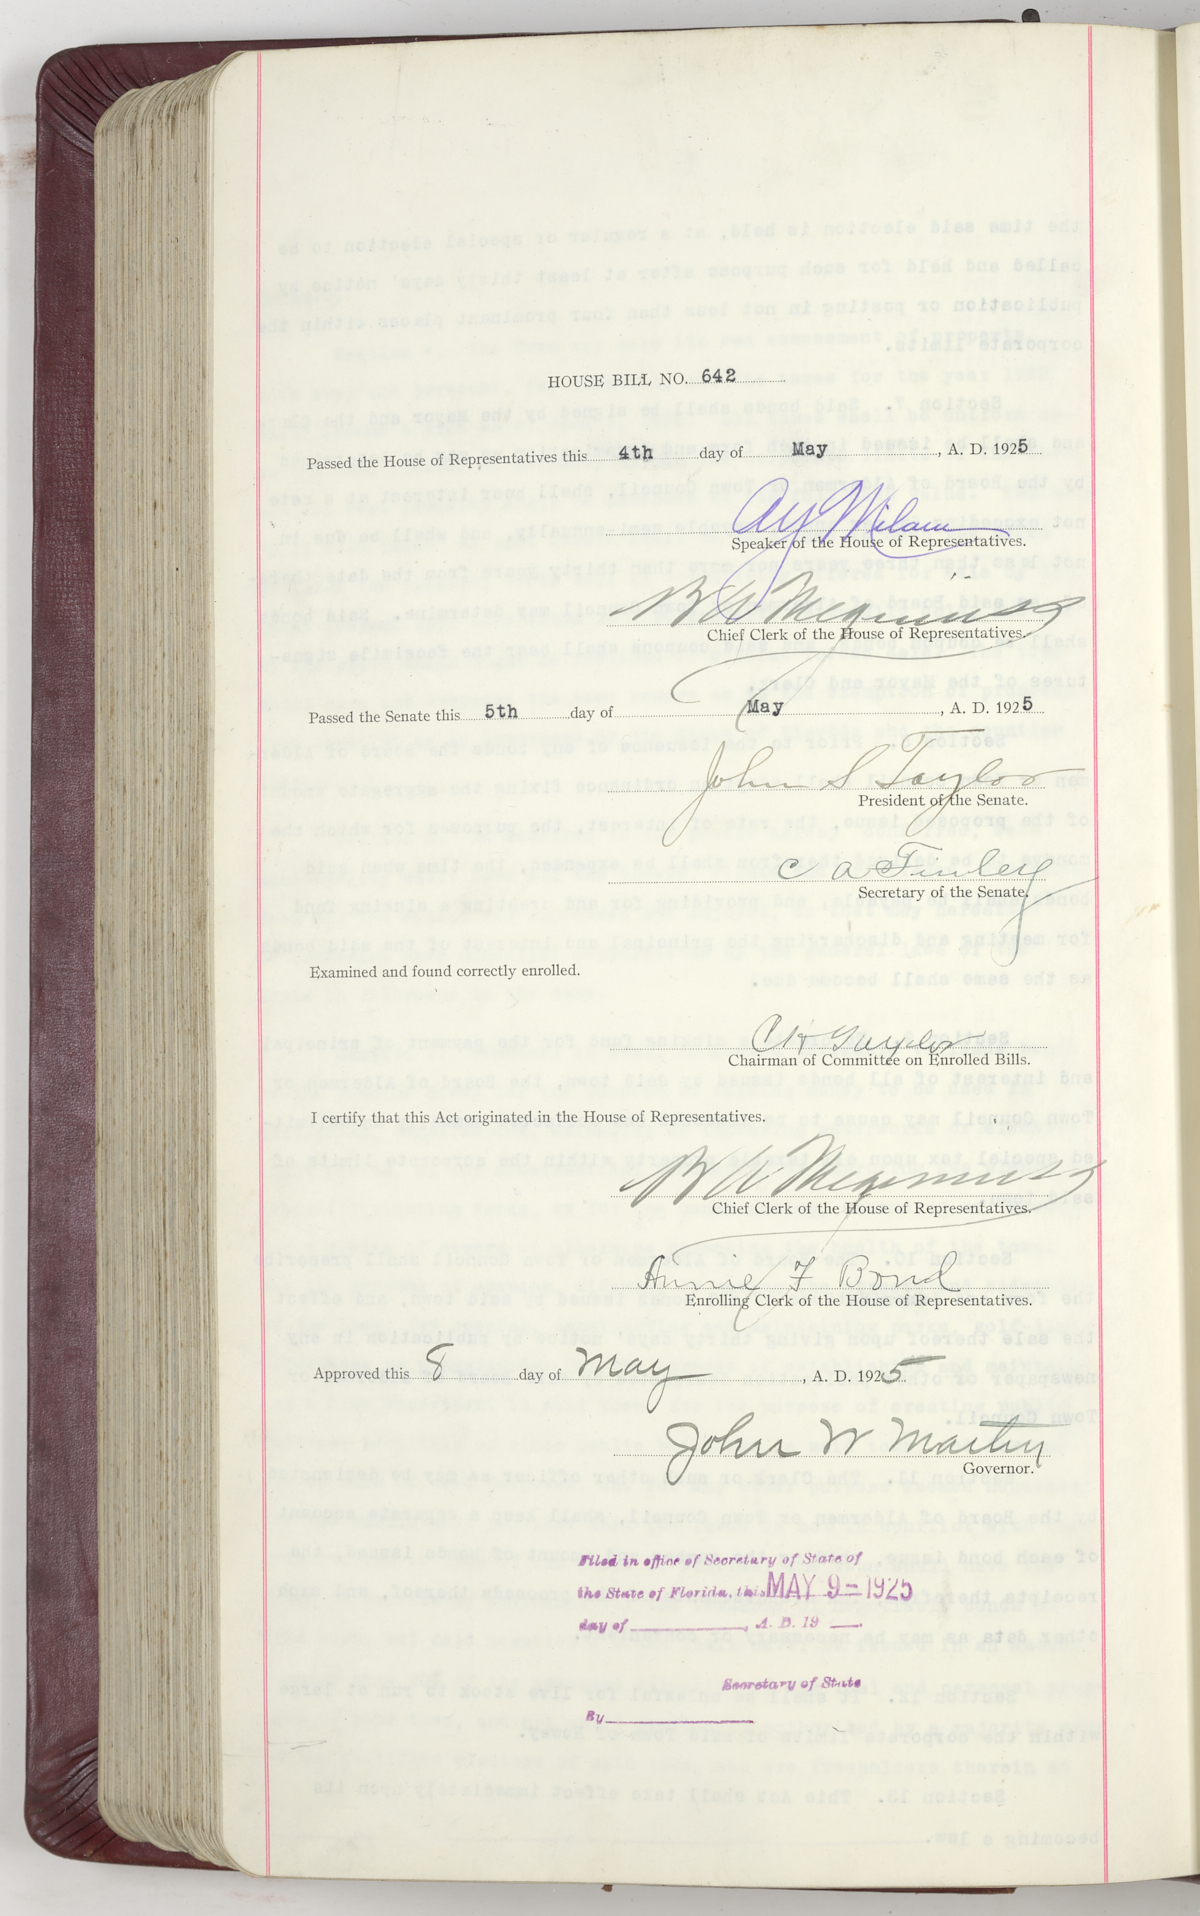 HOUSE BILL NO. 642
Passed the House of Representatives this 4th day of May, A. D. 1925
A Y Milam
Speaker of the House of Representatives.
B W
Chief Clerk of the House of Representatives.
Passed the Senate this 5th day of May, A. D. 1925
John S Taylor
President of the Senate.
C A Finley
Secretary of the Senate.
Examined and found correctly enrolled.
C H Taylor
Chairman of Committee on Enrolled Bills.
I certify that this Act originated in the House of Representatives.
B W
Chief Clerk of the House of Representatives.
Annie F Bond
Enrolling Clerk of the House of Representatives.
Approved this 8 day of May, A. D. 1925
John W Martin
Governor.
Filed in office of Secretary of State of
the State of Florida, this MAY 9 - 1925
day of , A. D. 19 .
Secretary of State
By